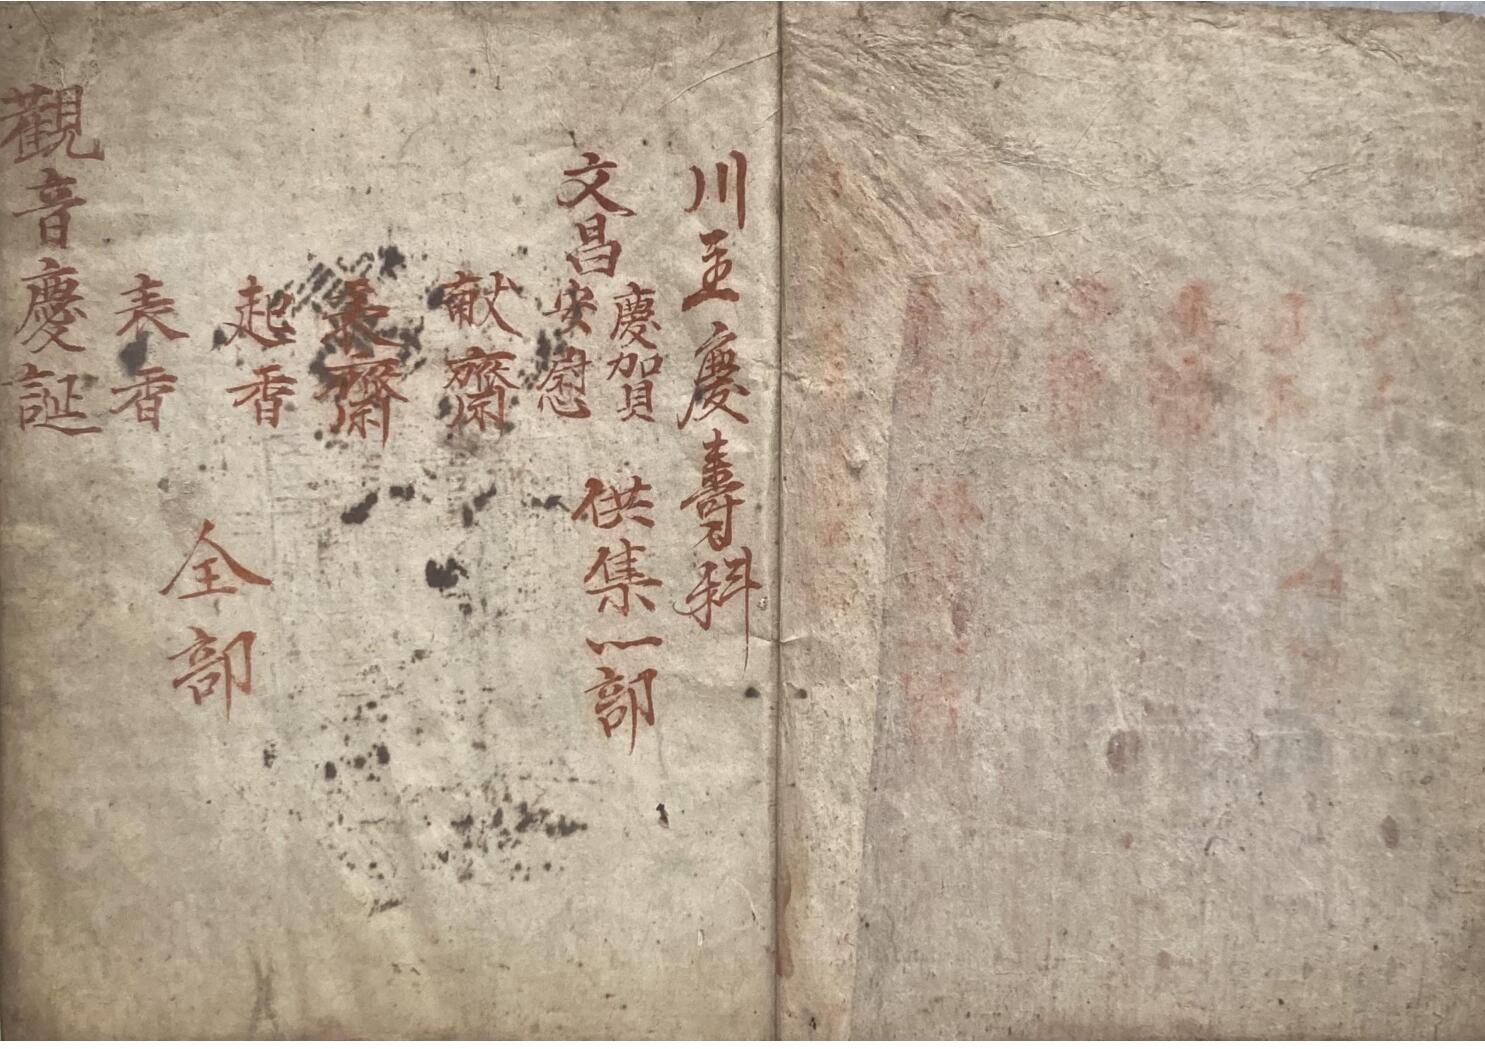 川主慶壽科
文昌
慶賀
安慰
供集一部
献齋
齋
起香
表香
全部
觀音慶誕